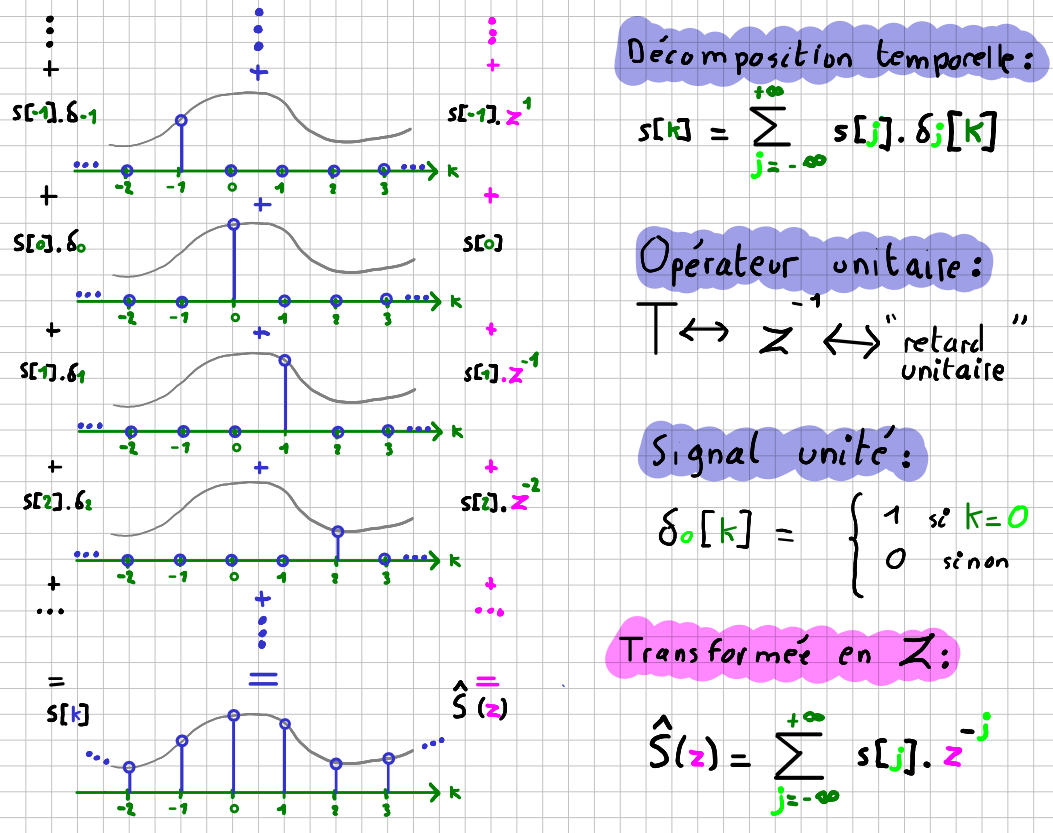 + + +
s[-1].δ-1
s[-1].z^1
... -2 -1 0 1 2 3 ... k
+ + +
s[0].δ0
s[0]
... -2 -1 0 1 2 3 ... k
+ + +
s[1].δ1
s[1].z^-1
... -2 -1 0 1 2 3 ... k
+ + +
s[2].δ2
s[2].z^-2
... -2 -1 0 1 2 3 ... k
+ + +
... ...
= = =
s[k]
Ŝ(z)
-2 -1 0 1 2 3 k
Décomposition temporelle :
+∞
s[k] = ∑ s[j].δj[k]
j=-∞
Opérateur unitaire :
T ↔ z^-1 ↔ "retard
unitaire"
Signal unité :
δ0[k] = { 1 si k=0
0 sinon
Transformée en Z :
+∞
Ŝ(z) = ∑ s[j].z^-j
j=-∞